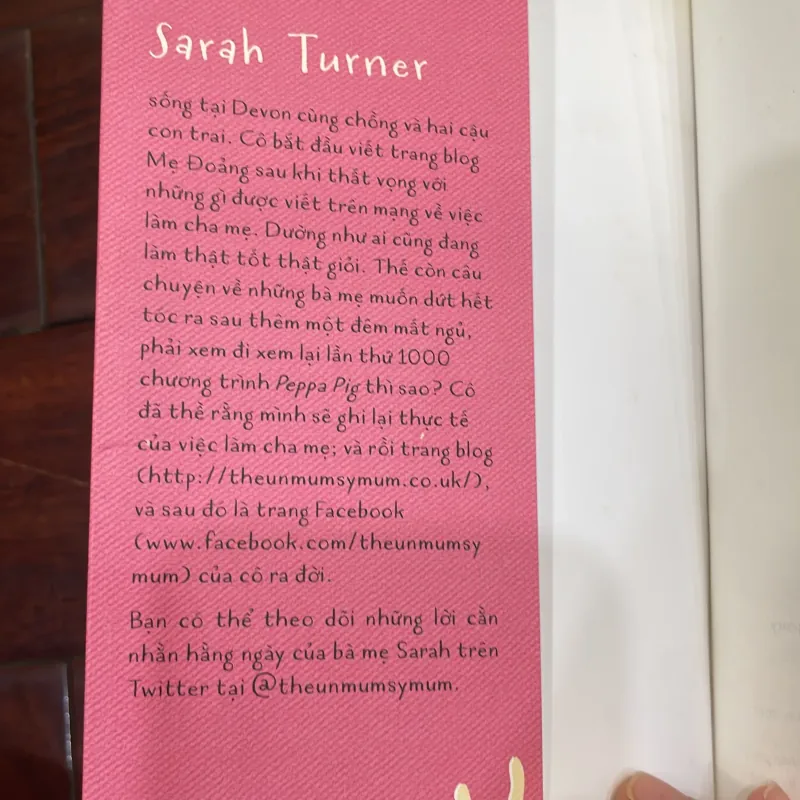 Sarah Turner
sống tại Devon cùng chồng và hai cậu
con trai. Cô bắt đầu viết trang blog
Mẹ Đoảng sau khi thất vọng với
những gì được viết trên mạng về việc
làm cha mẹ. Dường như ai cũng đang
làm thật tốt thật giỏi. Thế còn câu
chuyện về những bà mẹ muốn dứt hết
tóc ra sau thêm một đêm mất ngủ,
phải xem đi xem lại lần thứ 1000
chương trình Peppa Pig thì sao? Cô
đã thề rằng mình sẽ ghi lại thực tế
của việc làm cha mẹ; và rồi trang blog
(http://theunmumsymum.co.uk/),
và sau đó là trang Facebook
(www.facebook.com/theunmumsy
mum) của cô ra đời.
Bạn có thể theo dõi những lời cằn
nhằn hằng ngày của bà mẹ Sarah trên
Twitter tại @theunmumsymum.